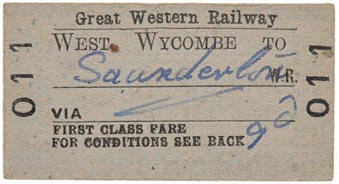 Great Western Railway
WEST WYCOMBE TO
Saunderton
W.R.
VIA
FIRST CLASS FARE
FOR CONDITIONS SEE BACK
9d
011
011